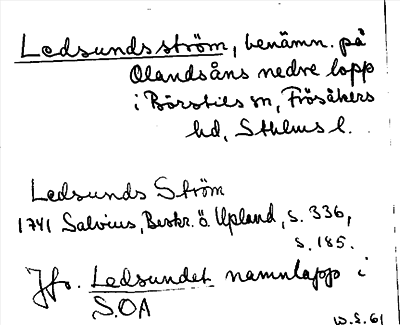 Ledsundsström, benämn. på
Olandsåns nedre lopp
i Börstils sn, Frösåkers
hd, Sthlms l.
Ledsunds Ström
1741 Salvius, Beskr. ö. Upland, s. 336,
s. 185.
Jfr. Ledsundet namnlapp i
S.OA
W.E. 61